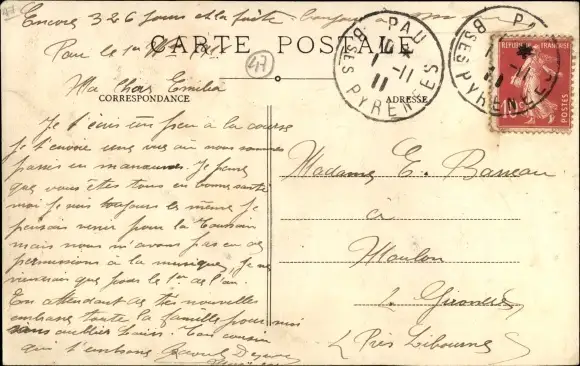 Encore 326 jours et la fuite. Bonjour
Pau le 1er
CARTE POSTALE
Ma chère Emilia
CORRESPONDANCE
Je t'écris un peu à la course
Je t'envoie une vue où nous sommes
passés en manœuvres. Je pense
que vous êtes tous en bonne santé
moi je suis toujours le même je
pensais venir pour la Toussain
mais nous n'avons pas eu de
permissions à la musique, je ne
viendrai que pour le 1er de l'an.
En attendant de tes nouvelles
embrasse toute la famille pour moi
sans oublier Ton cousin
qui t'embrasse Raoul
47
PAU
1 -11
11
BSES PYRENEES
PAU
1 -11
11
BSES PYRENEES
REPUBLIQUE FRANCAISE
10
POSTES
ADRESSE
Madame E. Barreau
à
Moulon
Gironde
Près Libourne